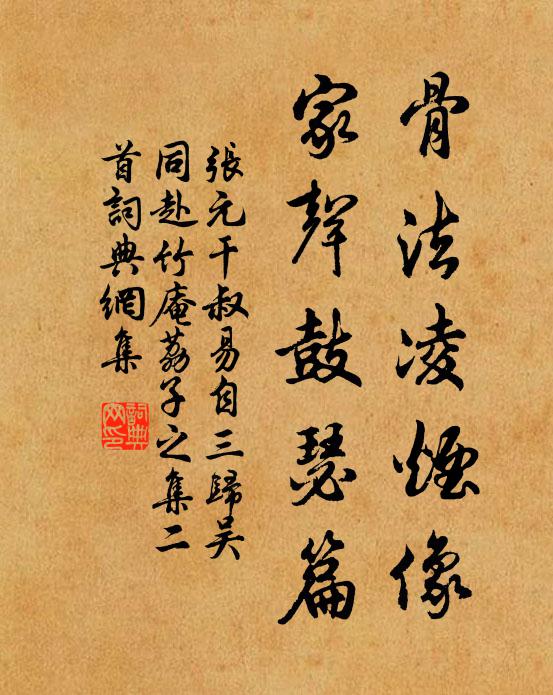 骨法凌煙像
家聲鼓瑟篇
張元干叔易自三歸吴
同赴竹庵荔子之集二
首詞典網集
詞典
网印